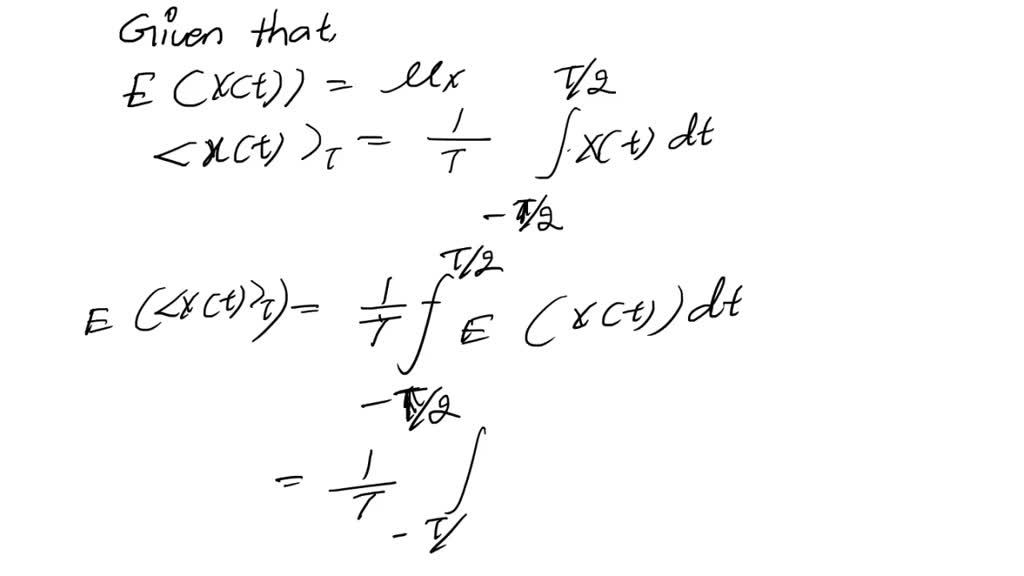 Given that
E (X(t)) = μx
<x(t)>τ = 1/T ∫_{-T/2}^{T/2} X(t) dt
E (<x(t)>τ) = 1/T ∫_{-T/2}^{T/2} E (x(t)) dt
= 1/T ∫_{-T/}